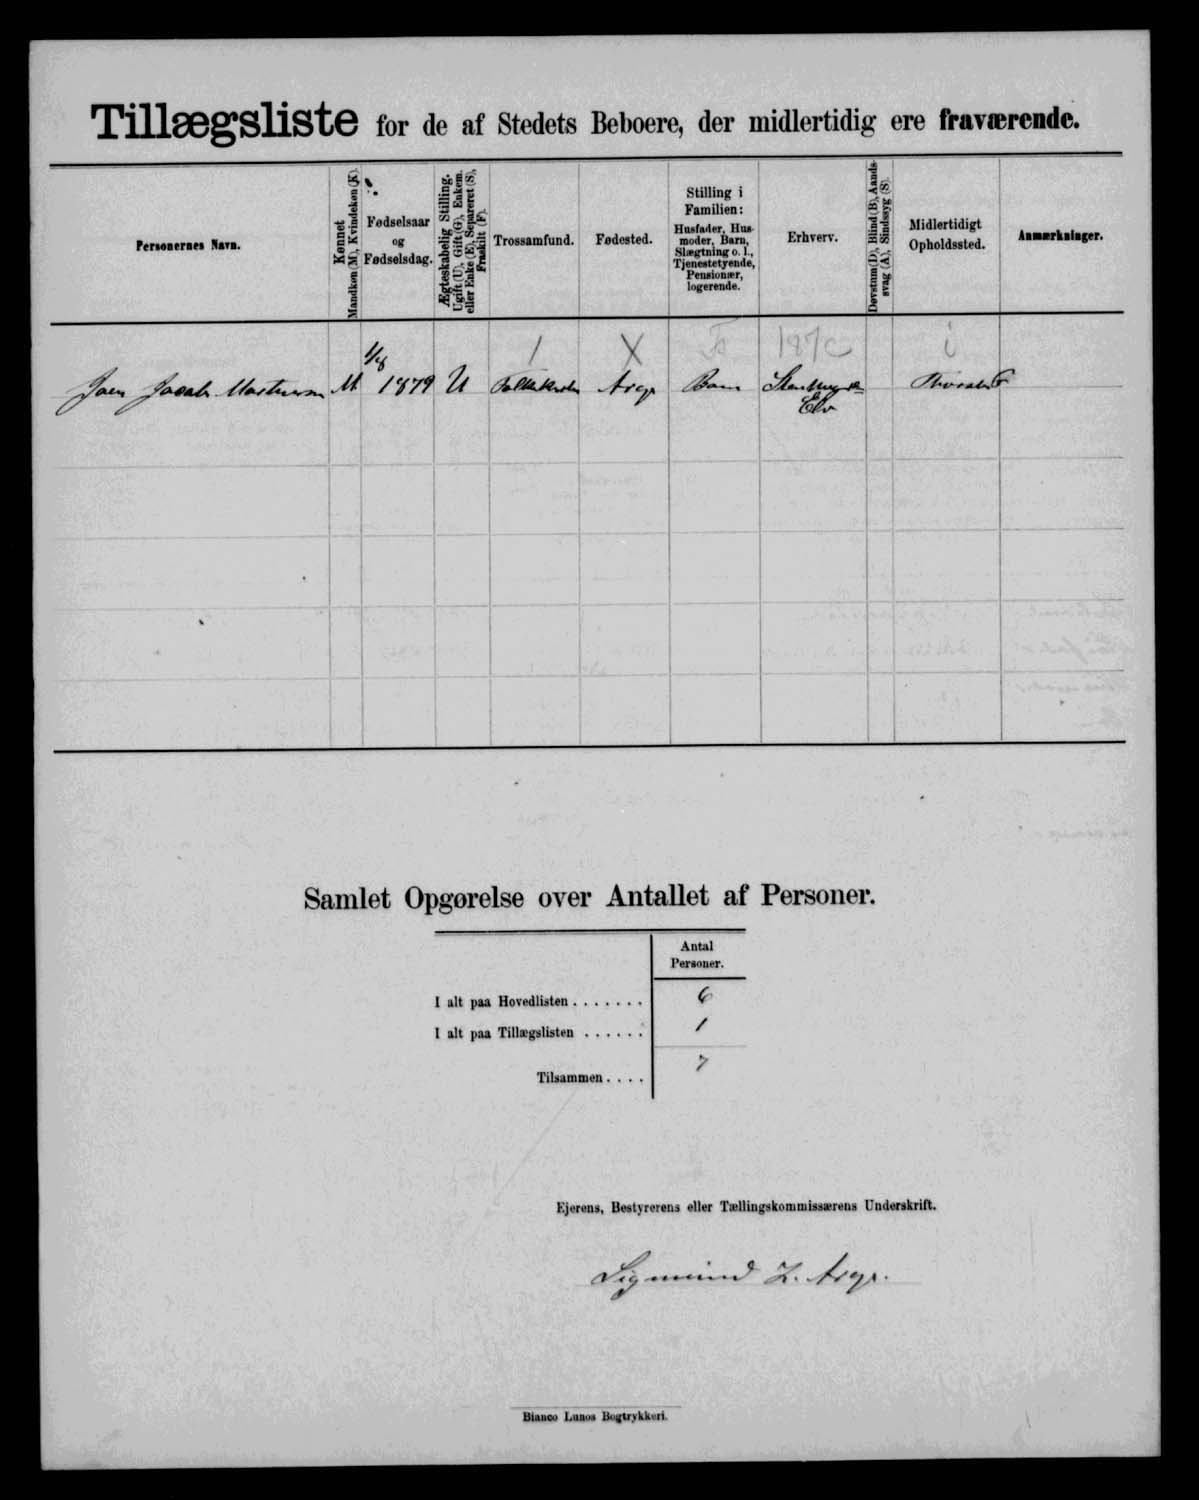 Tillægsliste for de af Stedets Beboere, der midlertidig ere fraværende.
Personernes Navn.
Kønnet
Mandkøn (M), Kvindekøn (K).
Fødselsaar
og
Fødselsdag.
Ægteskabelig Stilling.
Ugift (U), Gift (G), Enkem.
eller Enke (E), Separeret (S),
Fraskilt (F).
Trossamfund.
Fødested.
Stilling i
Familien:
Husfader, Hus-
moder, Barn,
Slægtning o. l.,
Tjenestetyende,
Pensionær,
logerende.
Erhverv.
Døvstum (D), Blind (B), Aands-
svag (A), Sindssyg (S).
Midlertidigt
Opholdssted.
Anmærkninger.
Joen Jacob Mortensen M 1/8 1879 U Folkekirken Arge Barn
Elev
Samlet Opgørelse over Antallet af Personer.
Antal
Personer.
I alt paa Hovedlisten . . . . . . . 6
I alt paa Tillægslisten . . . . . . 1
Tilsammen . . . . 7
Ejerens, Bestyrerens eller Tællingskommissærens Underskrift.
Sigmund Z. Arge.
Bianco Lunos Bogtrykkeri.